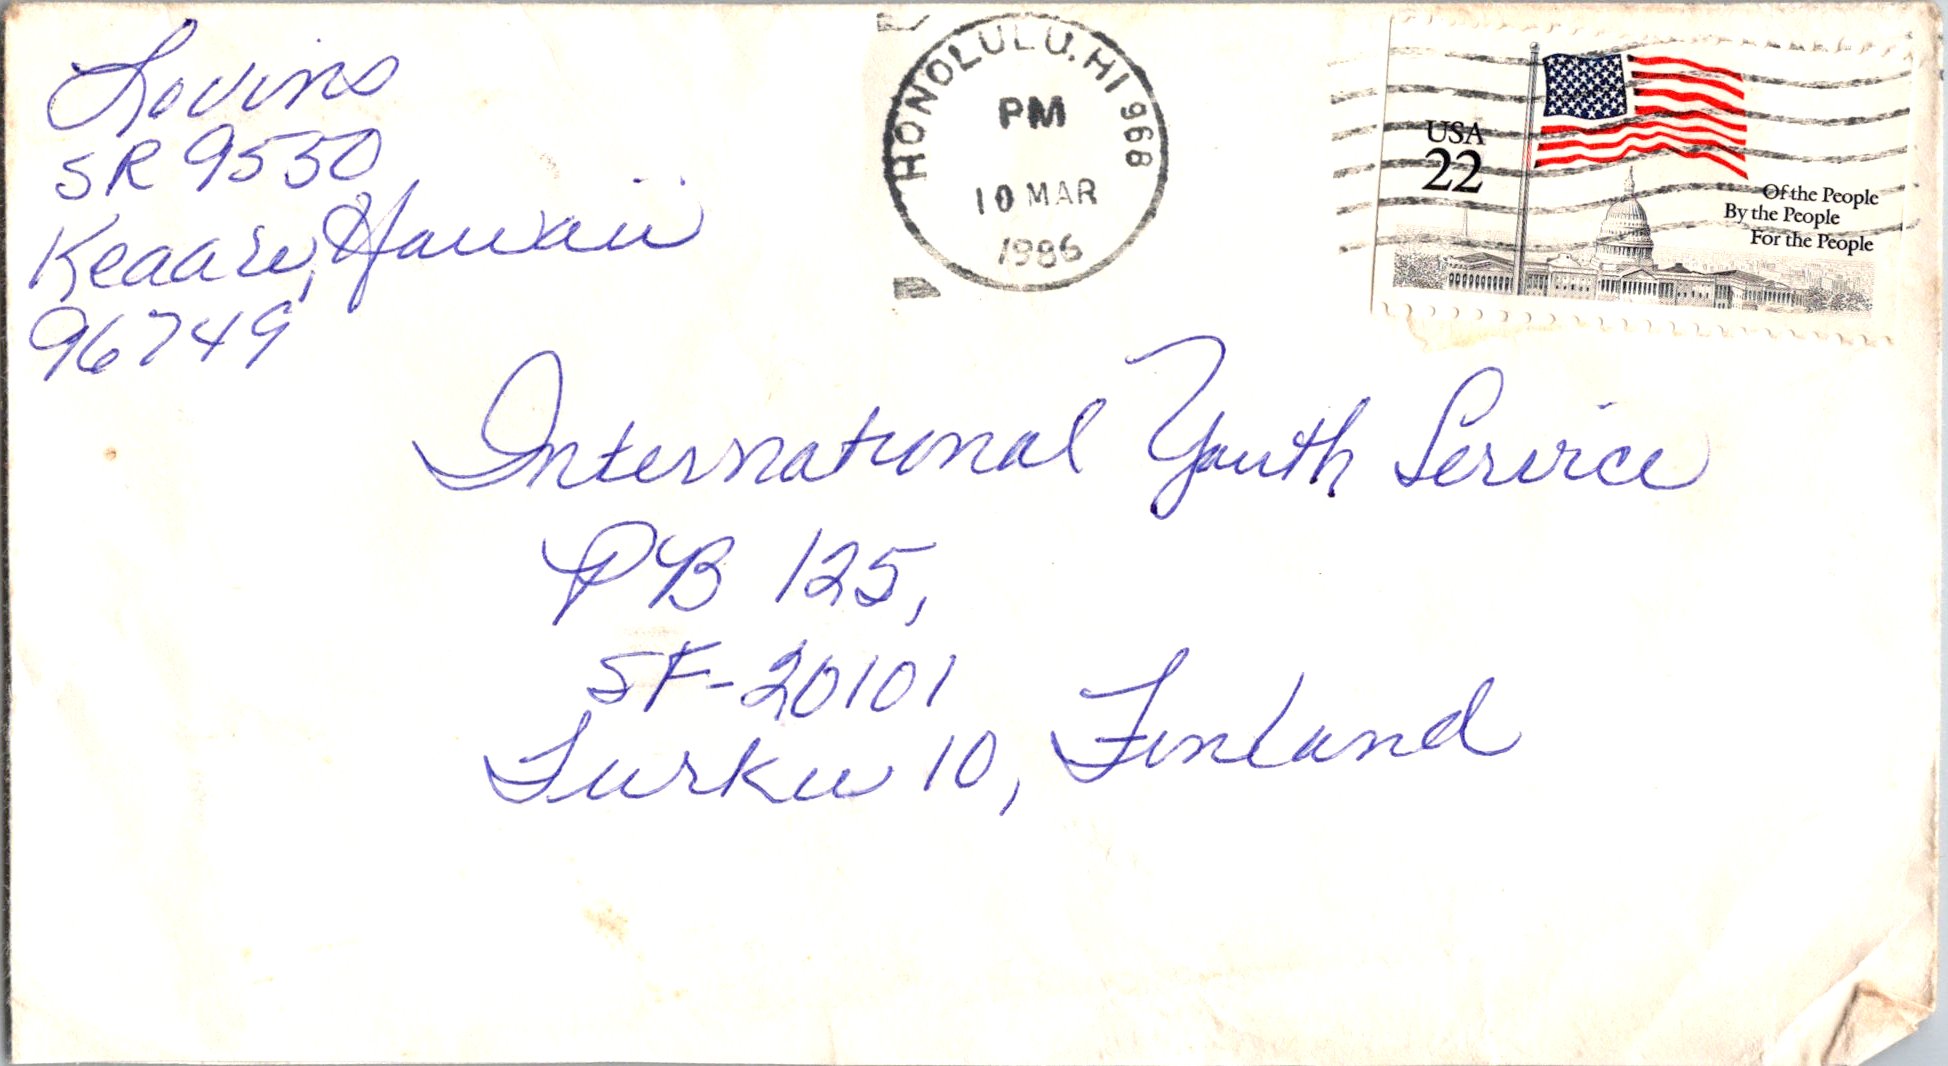 Lovins
SR 9550
Keaau, Hawaii
96749
HONOLULU, HI 968
PM
10 MAR
1986
USA
22
Of the People
By the People
For the People
International Youth Service
PB 125,
SF-20101
Turku 10, Finland